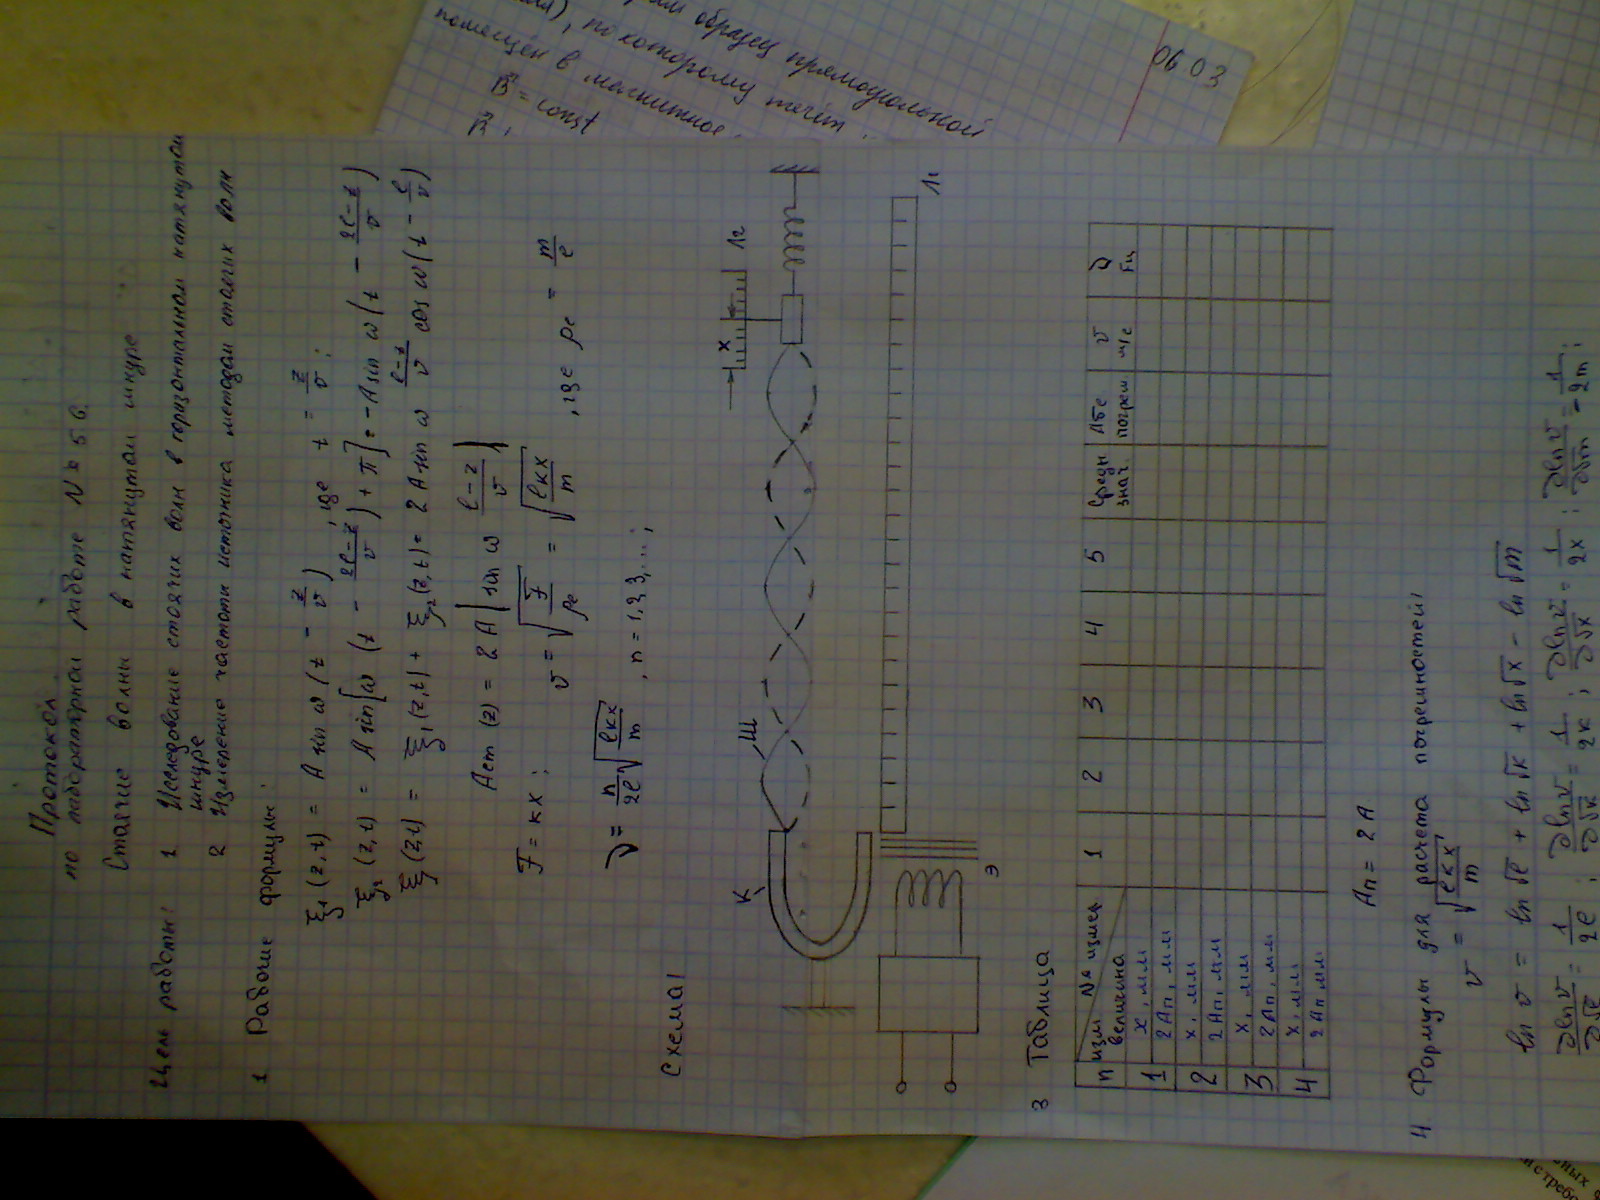 Протокол
по лабораторной работе № 56.
Стоячие волны в натянутом шнуре
Цель работы: 1 Исследование стоячих волн в горизонтальном натянутом
шнуре
2 Измерение частоты источника методом стоячих волн
1 Рабочие формулы:
ξ₁(z,t) = A sin ω(t - z/v), где t = z/v;
ξ₂(z,t) = A sin[ω(t - (2l-z)/v) + π] = -A sin ω(t - (2l-z)/v)
ξ(z,t) = ξ₁(z,t) + ξ₂(z,t) = 2A sin ω (l-z)/v cos ω(t - l/v)
Aст(z) = 2A |sin ω (l-z)/v|
F = kx; v = √(F/ρe) = √(lkx/m), где ρe = m/l
ν = n/2l √(lkx/m), n = 1,2,3,...;
Схема:
К
Ш
x
Л2
Л1
Э
3 Таблица
n изм № измер 1 2 3 4 5 Средн Абс v ν
величина знач. погреш. м/с Гц
1 x, мм
2Aп, мм
2 x, мм
2Aп, мм
3 x, мм
2Aп, мм
4 x, мм
2Aп, мм
Aп = 2A
4. Формулы для расчета погрешностей:
v = √(lkx/m)
ln v = ln √l + ln √k + ln √x - ln √m
∂ln v/∂√l = 1/2l; ∂ln v/∂√k = 1/2k; ∂ln v/∂√x = 1/2x; ∂ln v/∂√m = -1/2m;
образец прямоугольной
), по которому течёт
помещён в магнитное
B = const
B,
06 03